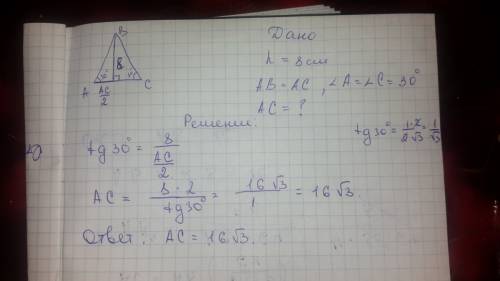 B
8
30° 30°
A C
AC/2
Дано
h = 8 см
AB = AC, ∠A = ∠C = 30°
AC = ?
Решение:
tg 30° = 8 / (AC/2)
tg 30° = 1·2 / 2√3 = 1/√3
AC = 8·2 / tg 30° = 16√3 / 1 = 16√3.
Ответ: AC = 16√3.